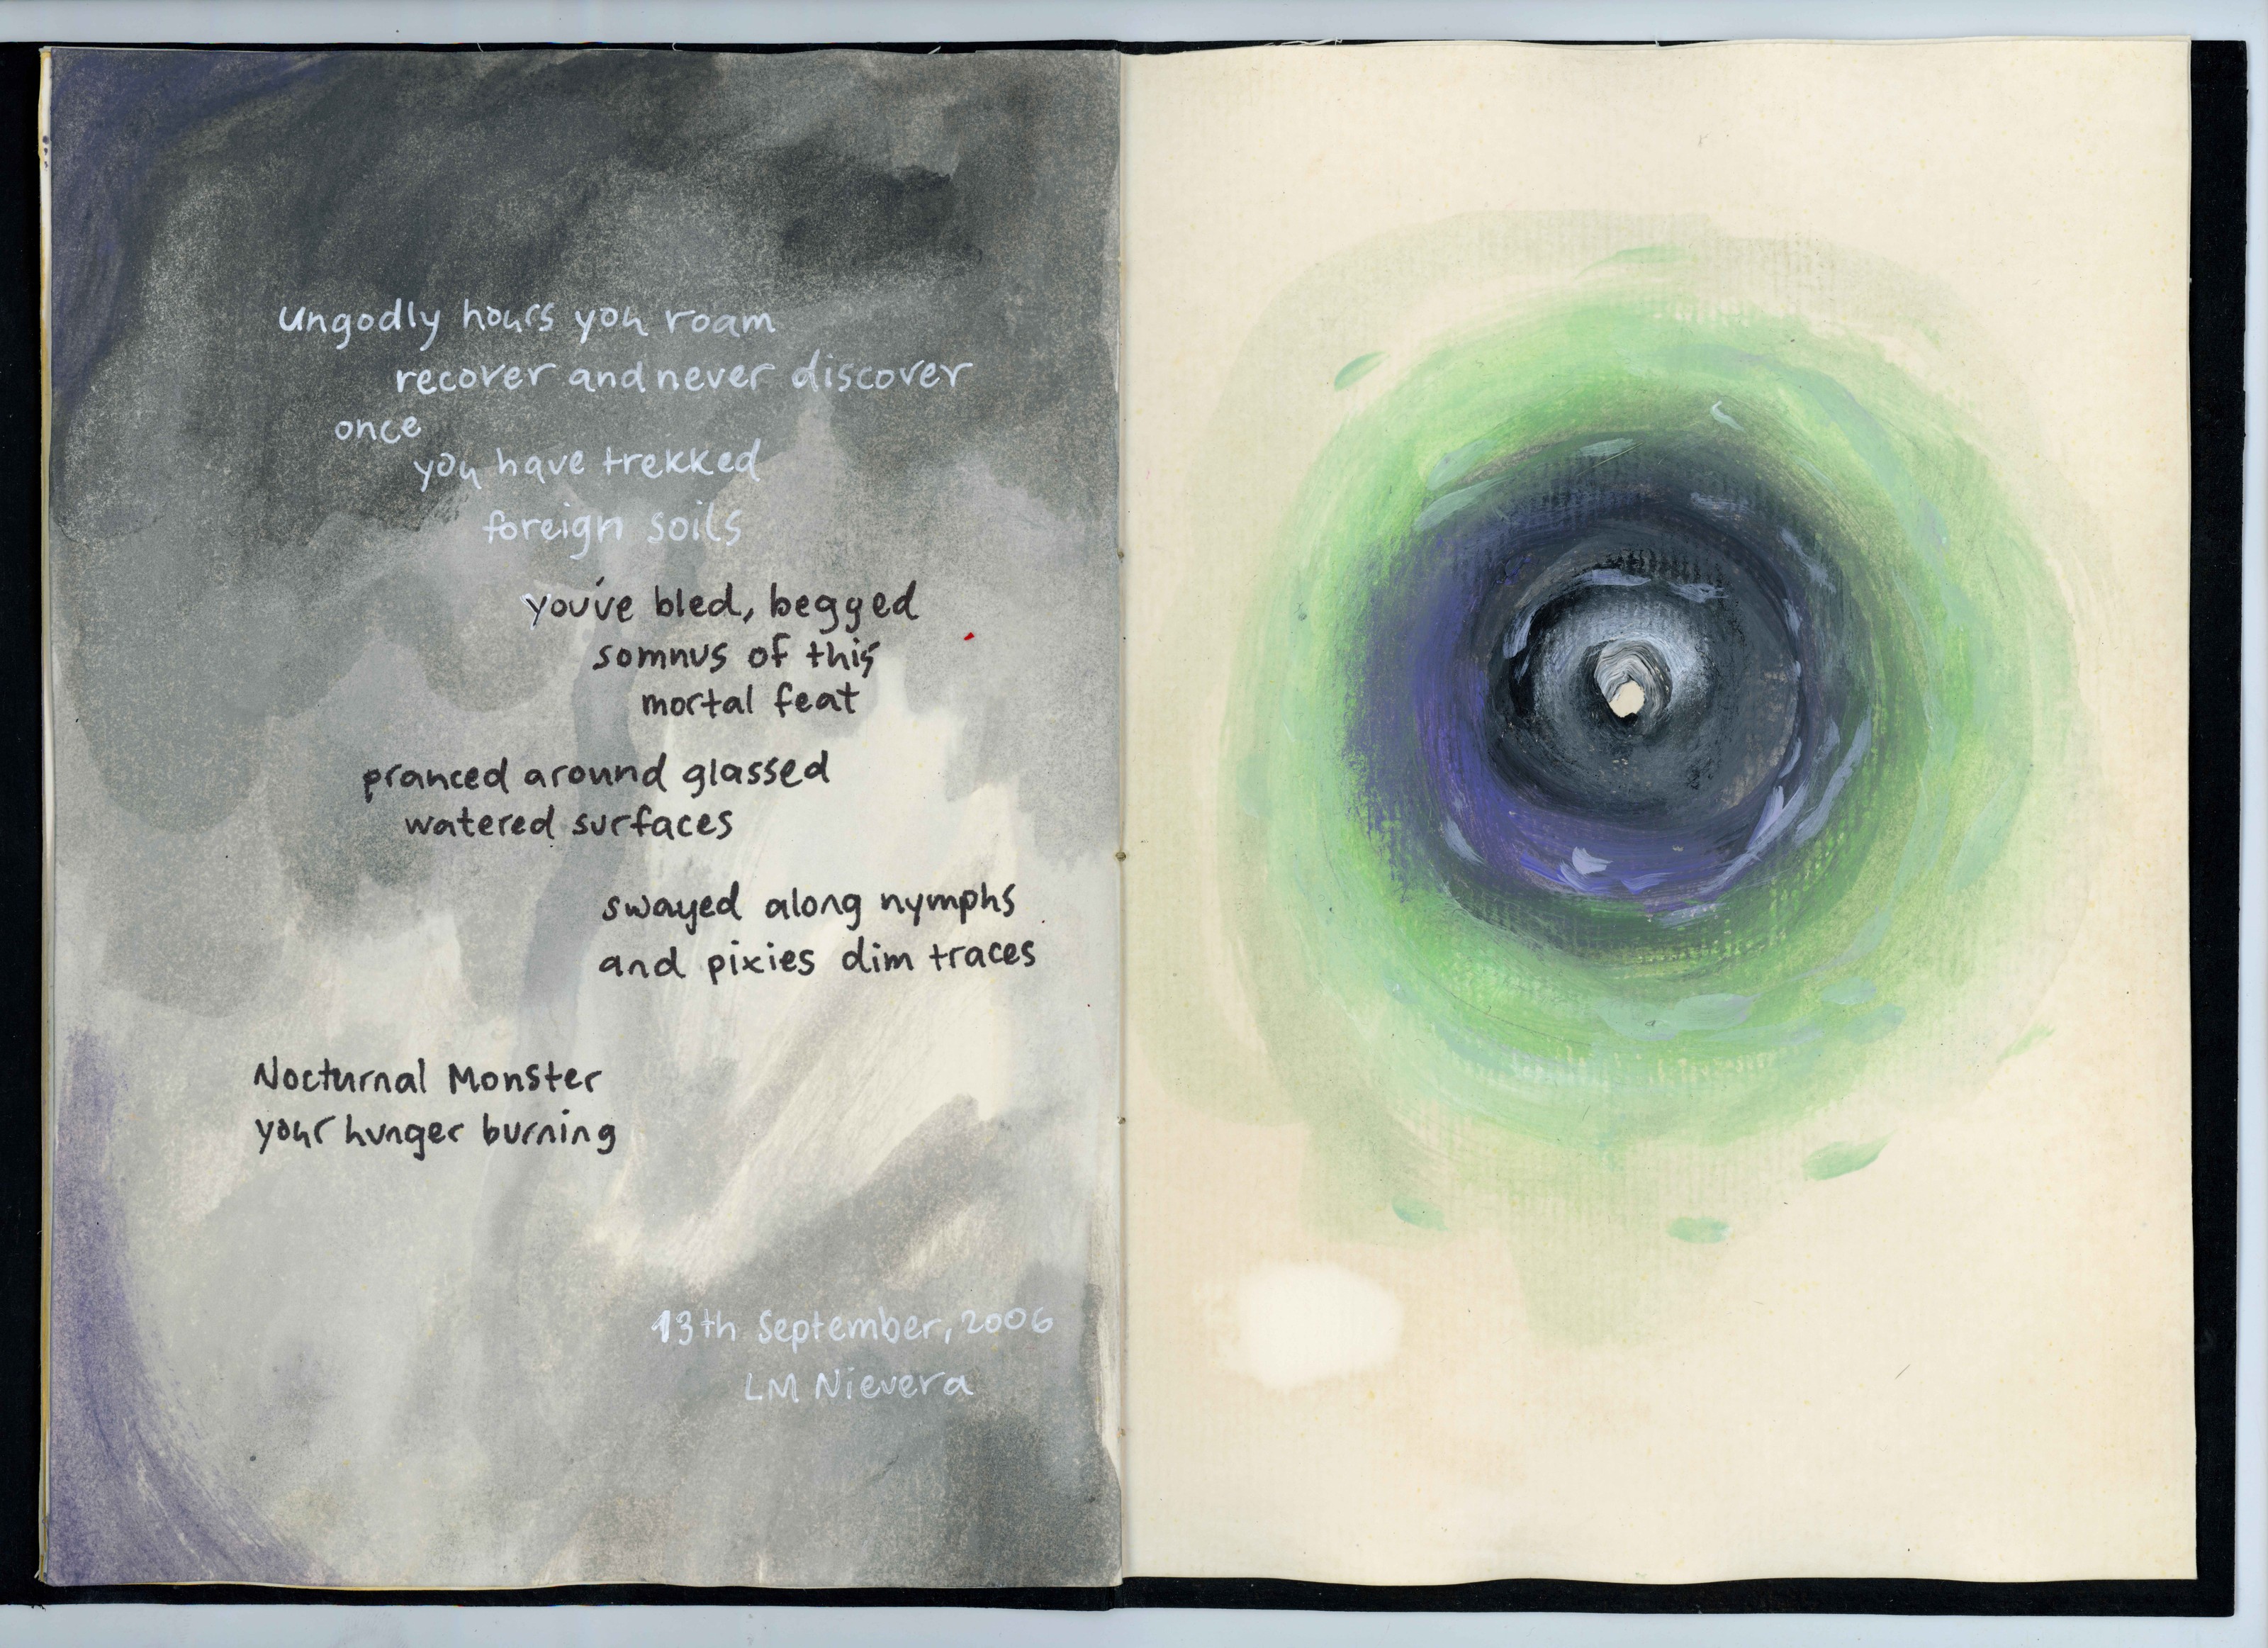 ungodly hours you roam
recover and never discover
once
you have trekked
foreign soils
you've bled, begged
somnus of this
mortal feat
pranced around glassed
watered surfaces
swayed along nymphs
and pixies dim traces
Nocturnal Monster
your hunger burning
13th September, 2006
LM Nievera